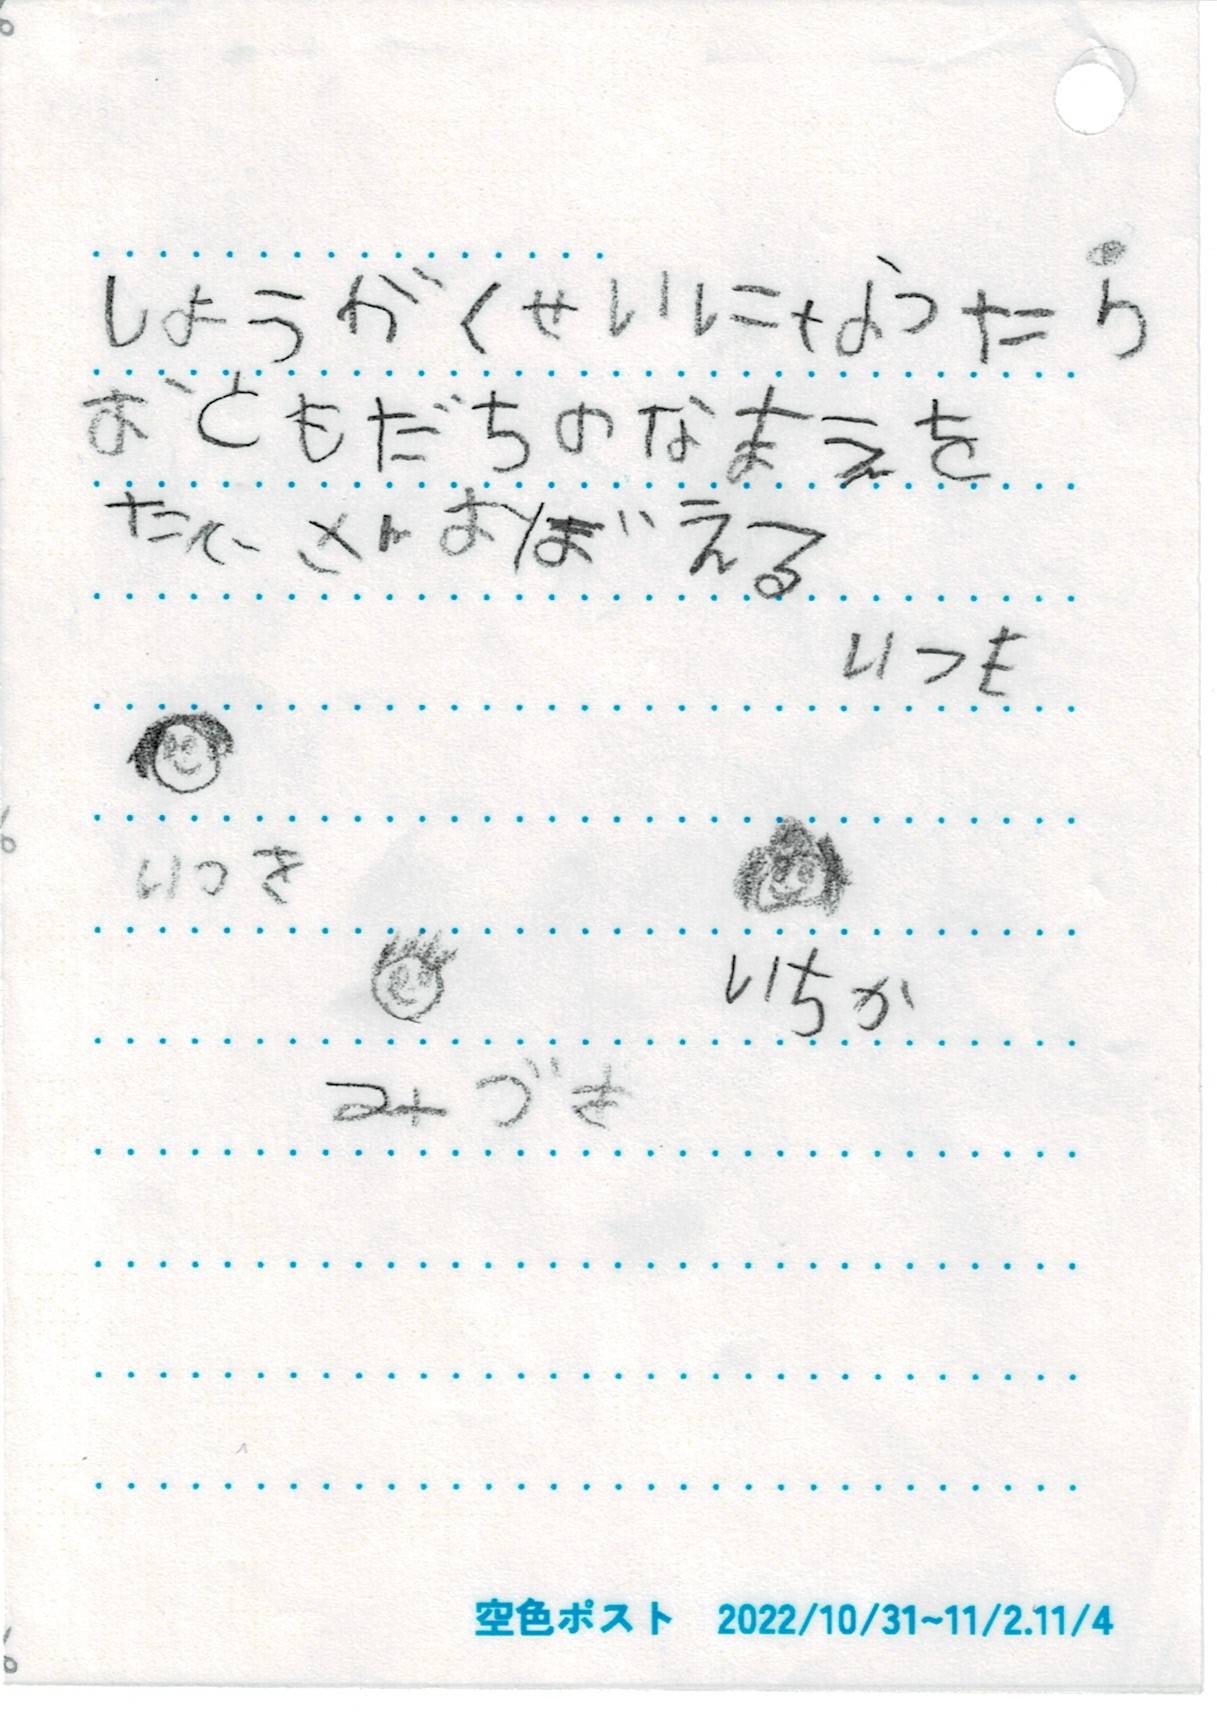 しょうがくせいになったら
おともだちのなまえを
たくさんおぼえる
いつき
いつき
いちか
みづき
空色ポスト 2022/10/31~11/2.11/4